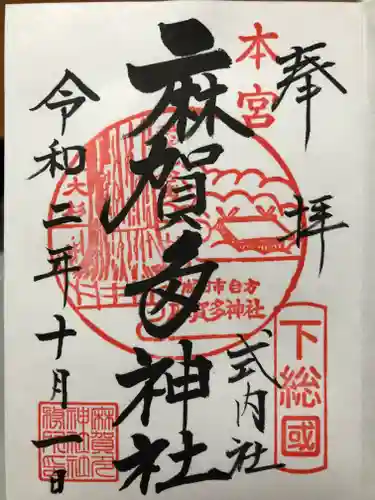 奉拝
本宮
下総國
式内社
麻賀多神社
大杉
成田市台方
麻賀多神社
令和二年十月一日